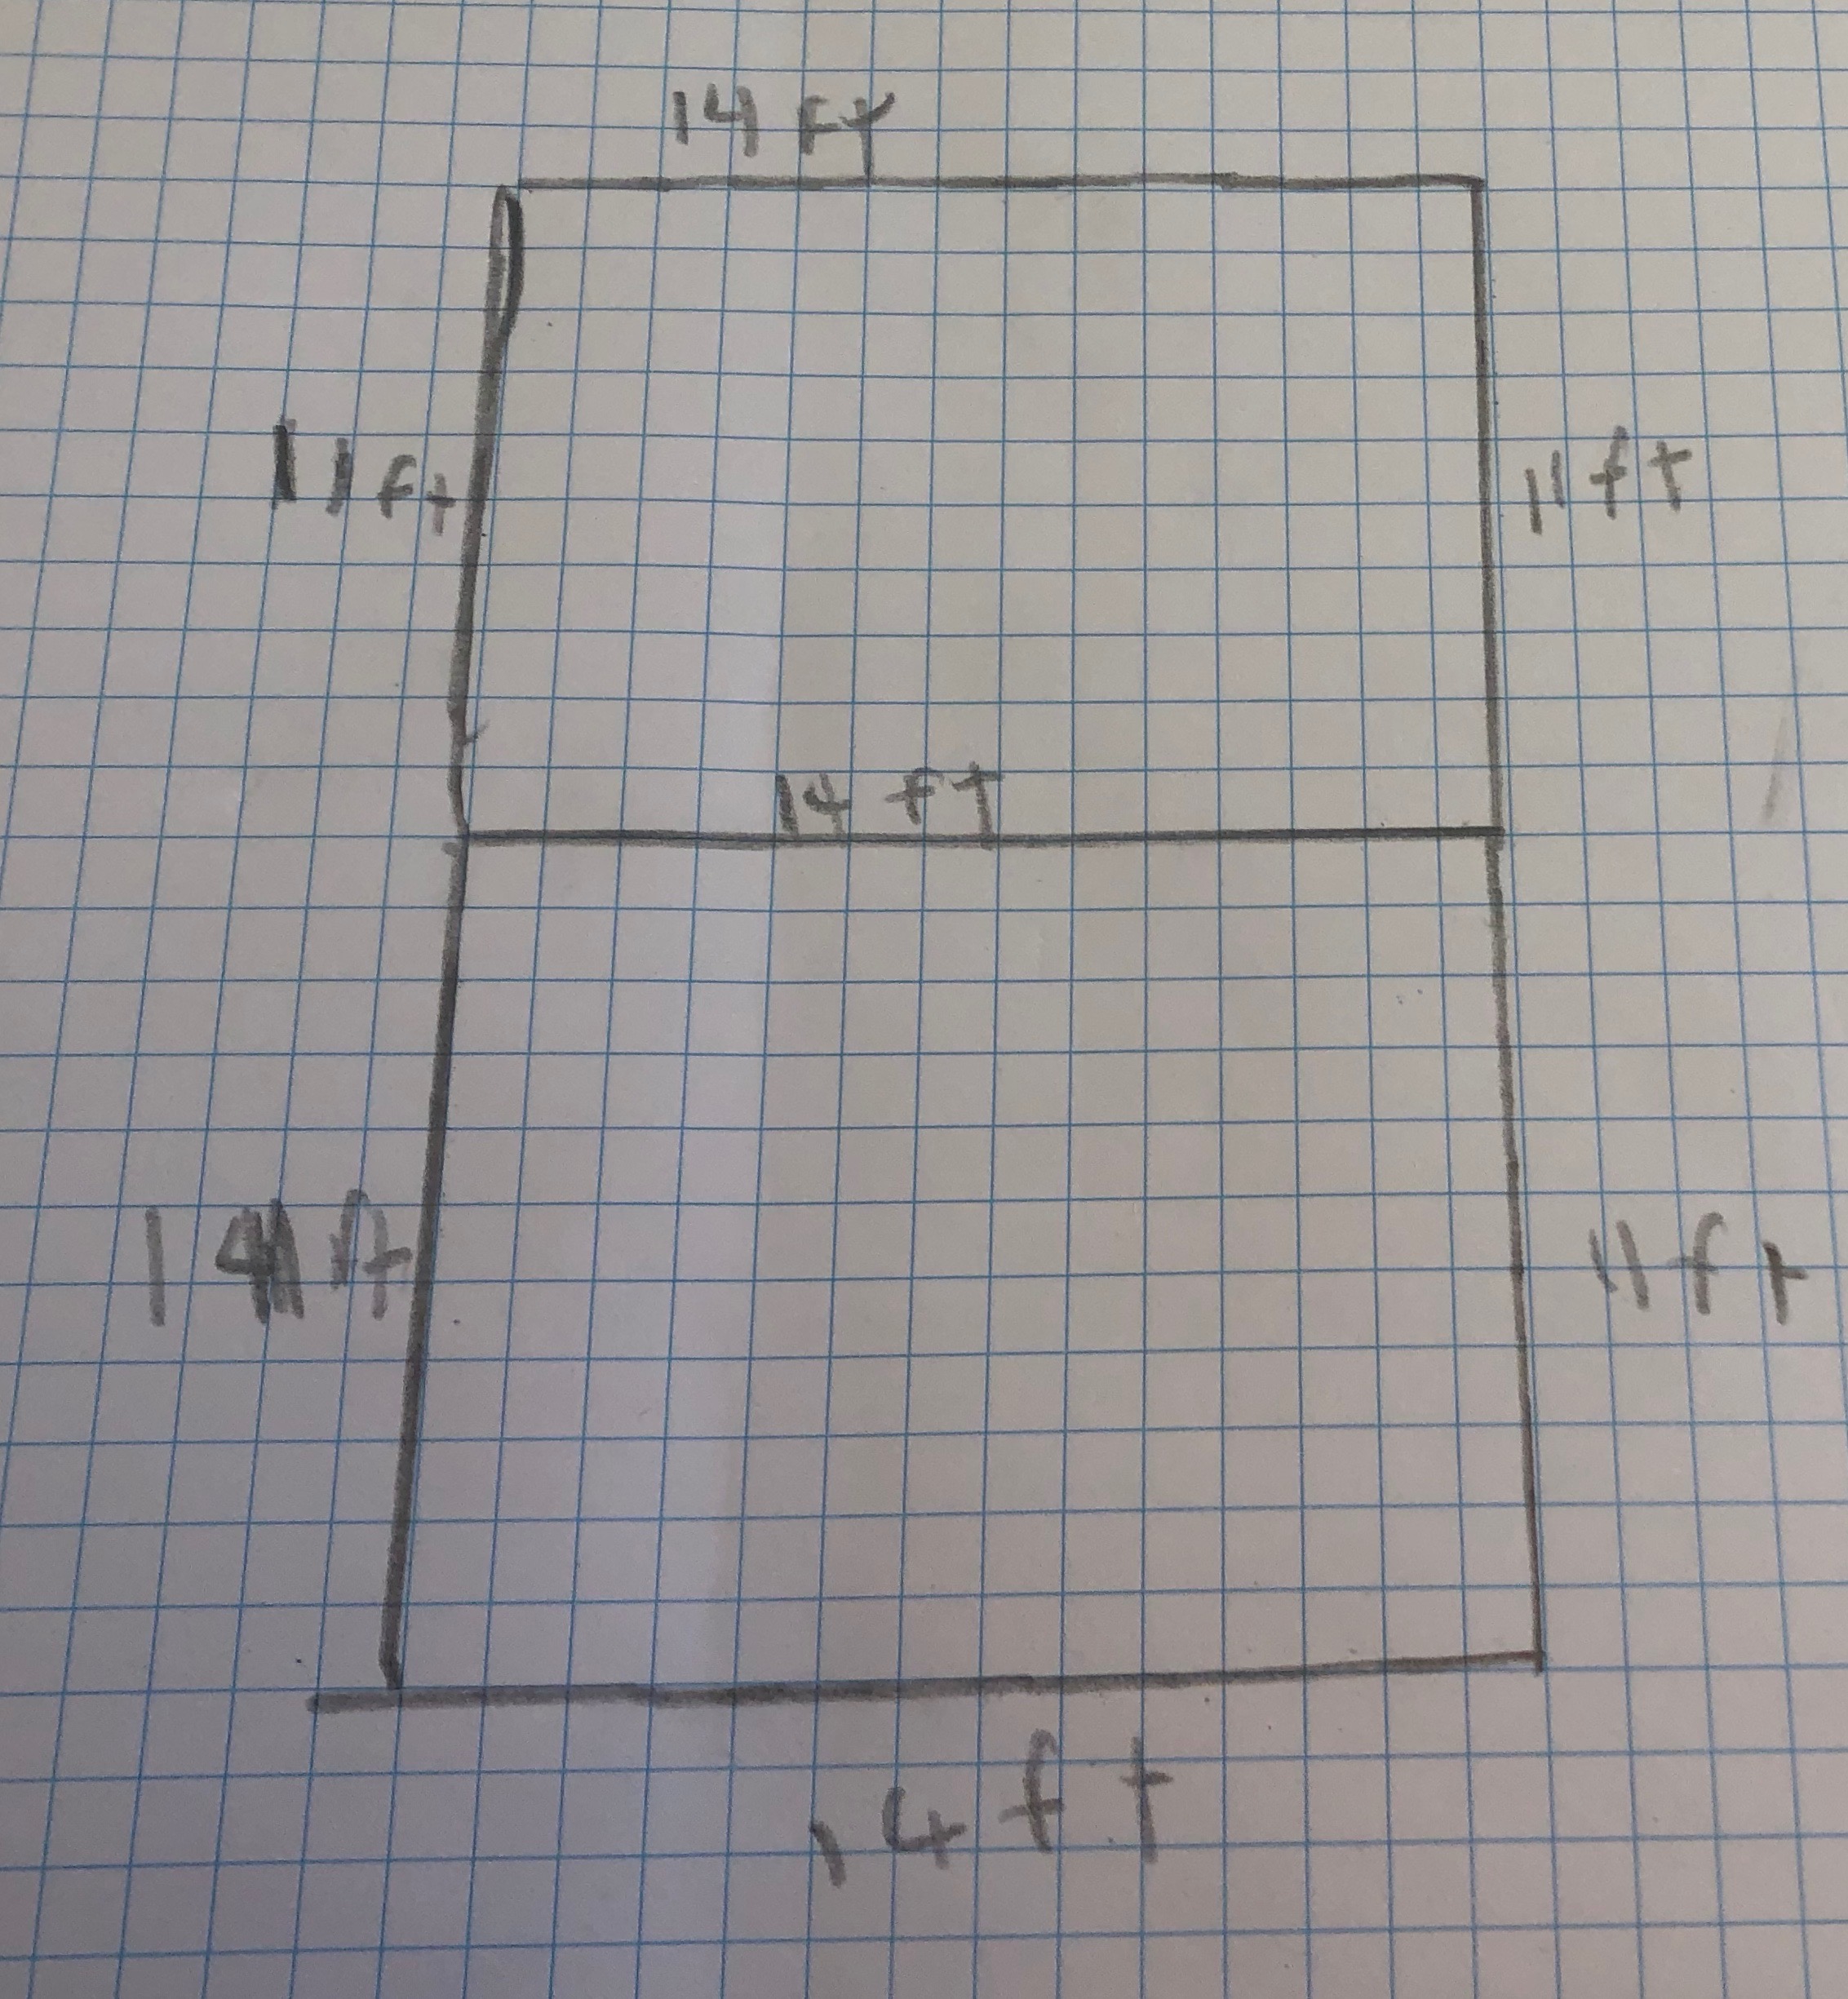 14 FT
11 ft
11 ft
14 ft
11 ft
14 ft